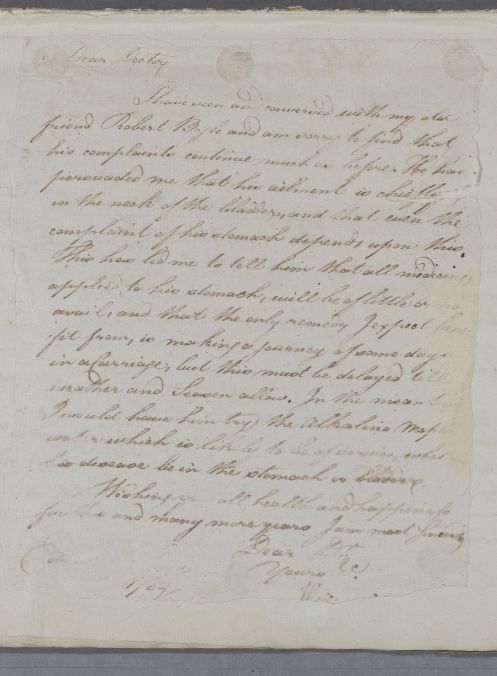 Dear Doctor
I have seen and conversed with my old
friend Robert Boyle and am sorry to find that
his complaints continue much as before. He has
persuaded me that his ailment is chiefly
in the neck of the bladder, and that even the
complaint of his stomach depends upon this.
This has led me to tell him that all medicines
applied to his stomach, will be of little or no
avail, and that the only remedy I expect bene
fit from, is making a journey of some days
in a Carriage, but this must be delayed till
weather and Season allow. In the mean
I would have him try the Alkaline
water which is likely to be of service
his disease be in the stomach or bladder.
Wishing you all health and happiness
for this and many more years I am most
Dear Dr.
Yours &c.
1789